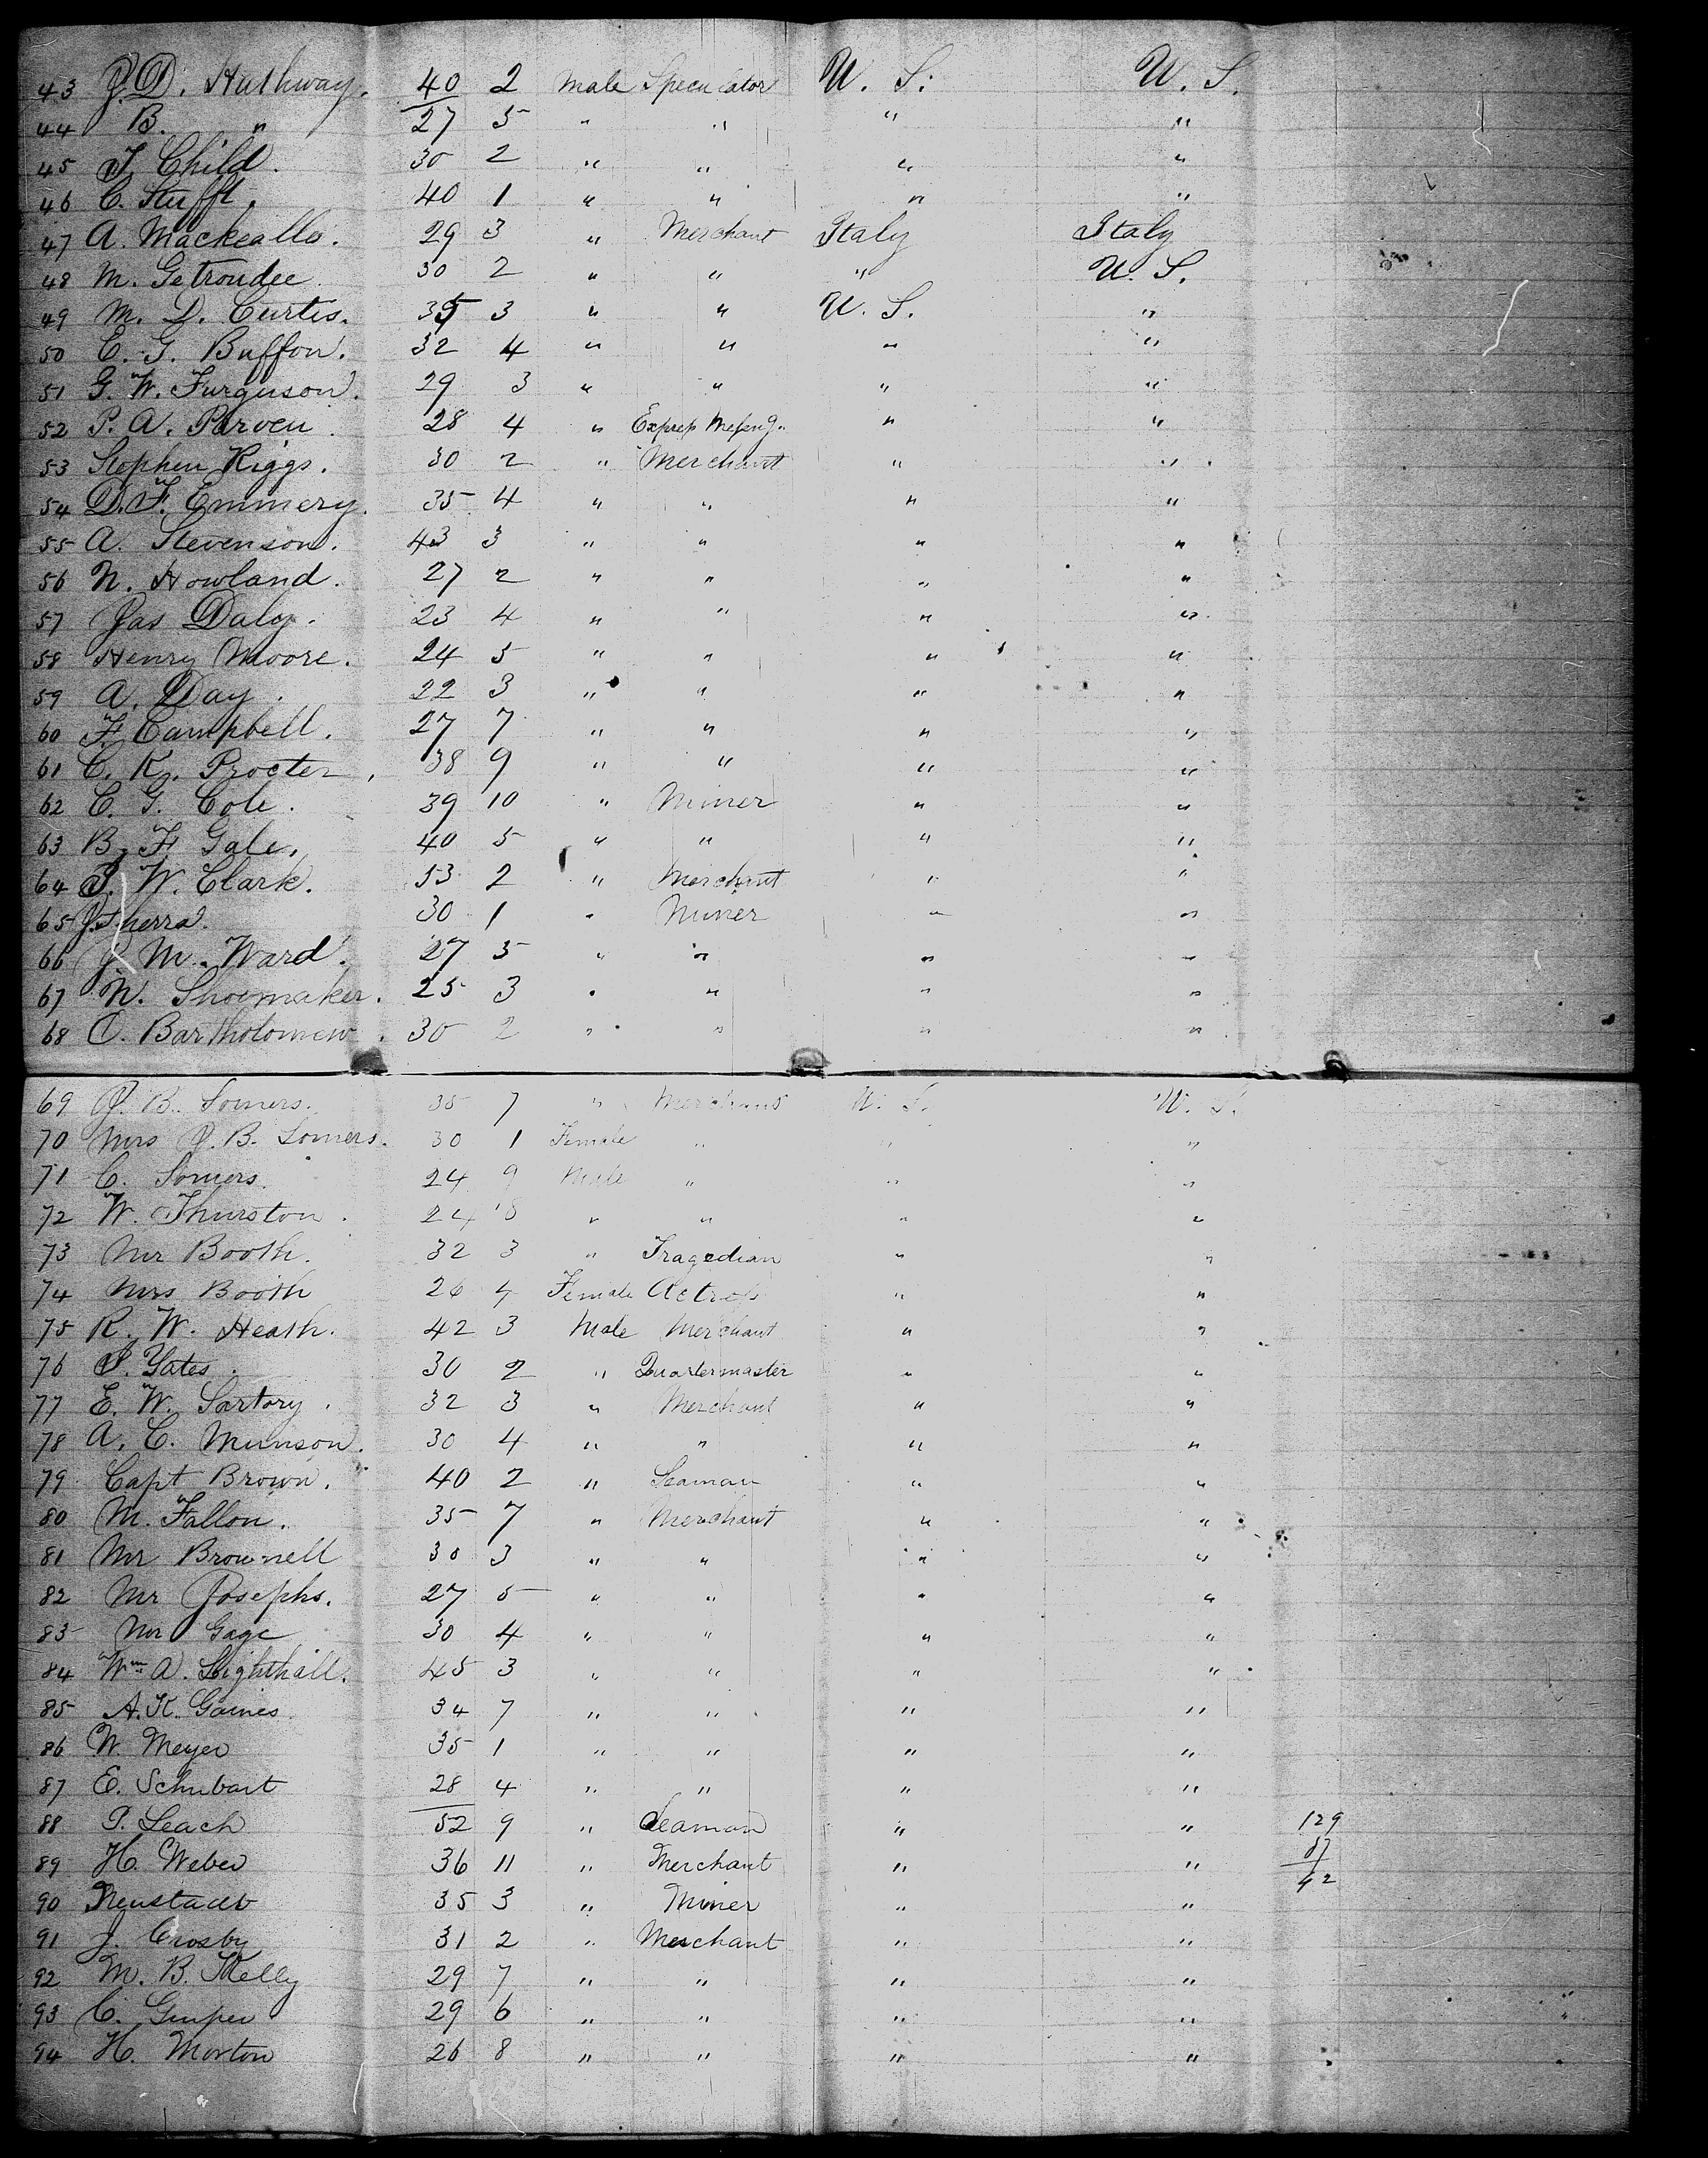 43 J. D. Hathway. 40 2 Male Speculator U. S. U. S.
44 B. " 27 5 " " " "
45 J. Child. 30 2 " " " "
46 C. Stufft. 40 1 " " " "
47 A. Mackeallo. 29 3 " Merchant Italy Italy
48 M. Getroudee 30 2 " " " U. S.
49 M. D. Curtis. 35 3 " " U. S. "
50 E. G. Buffon. 32 4 " " " "
51 G. W. Furguson. 29 3 " " " "
52 P. A. Parven 28 4 " Express Messng. " "
53 Stephen Riggs. 30 2 " Merchant " "
54 D. F. Emmery. 35 4 " " " "
55 A. Stevenson. 43 3 " " " "
56 N. Howland. 27 2 " " " "
57 Jas Daly. 23 4 " " " "
58 Henry Moore. 24 5 " " " "
59 A. Day. 22 3 " " " "
60 F. Campbell. 27 7 " " " "
61 C. K. Procter, 38 9 " " " "
62 C. G. Cole. 39 10 " Miner " "
63 B. F Gale. 40 5 " " " "
64 S. W. Clark. 53 2 " Merchant " "
65 J. 30 1 " Miner " "
66 J M. Ward. 27 5 " " " "
67 N. Shoemaker. 25 3 " " " "
68 O. Bartholomew. 30 2 " " " "
69 J. B. Somers. 35 7 " Merchant U. S. U. S.
70 Mrs J. B. Somers. 30 1 Female " " "
71 C. Somers. 24 9 Male " " "
72 W. Thurston. 24 8 " " " "
73 Mr Booth. 32 3 " Tragedian " "
74 Mrs Booth 26 4 Female Actress " "
75 R. W. Heath. 42 3 Male Merchant " "
76 S. Yates. 30 2 " Quartermaster " "
77 E. W. Sartory. 32 3 " Merchant " "
78 A. C. Munson. 30 4 " " " "
79 Capt Brown. 40 2 " Seaman " "
80 M. Fallon. 35 7 " Merchant " "
81 Mr Brownell 30 3 " " " "
82 Mr Josephs. 27 5 " " " "
83 Mr Gage 30 4 " " " "
84 Wm A. Lighthall. 45 3 " " " "
85 A. K. Gaines 34 7 " " " "
86 W. Meyer 35 1 " " " "
87 E. Schubart 28 4 " " " "
88 P. Leach 52 9 " Seaman " " 129
89 H. Weber 36 11 " Merchant " " 87
42
90 Neustadt 35 3 " Miner " "
91 J. Crosby 31 2 " Merchant " "
92 M. B. Kelly 29 7 " " " "
93 C. 29 6 " " " "
94 H. Morton 26 8 " " " "